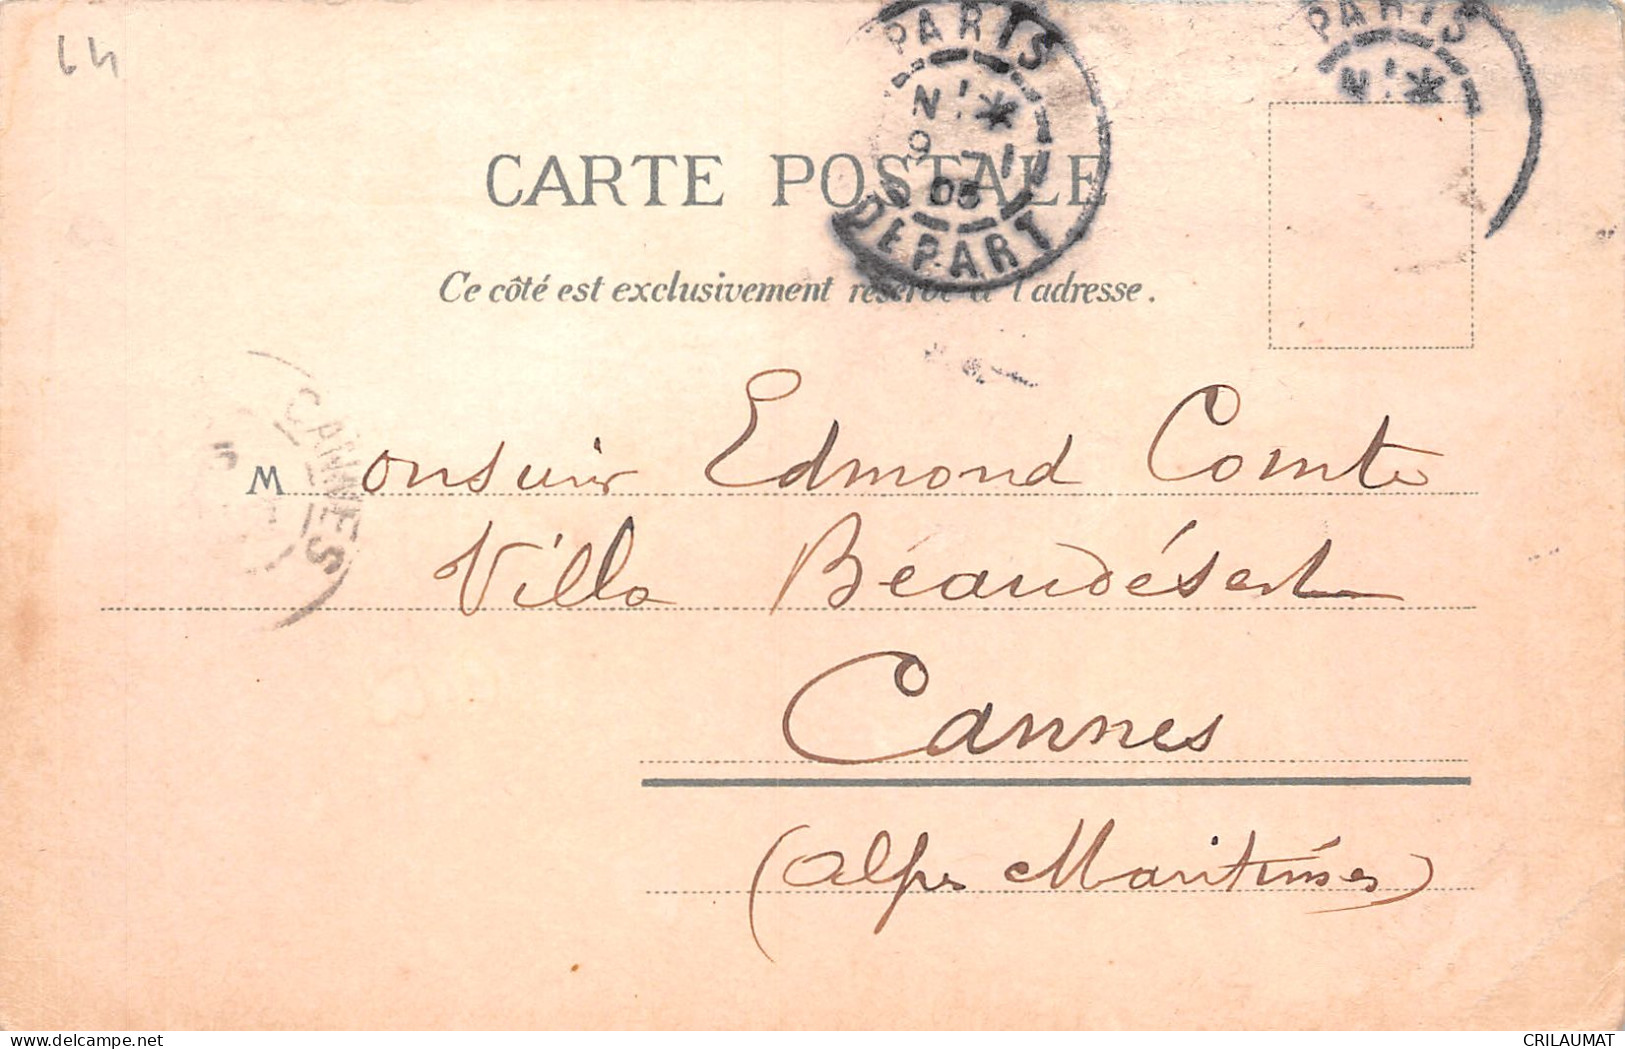 64
PARIS
DEPART
05
PARIS
CARTE POSTALE
Ce côté est exclusivement réservé à l'adresse.
CANNES
Monsieur Edmond Comte
Villa Béaudésert
Cannes
(Alpes Maritimes)
delcampe.net
CRILAUMAT